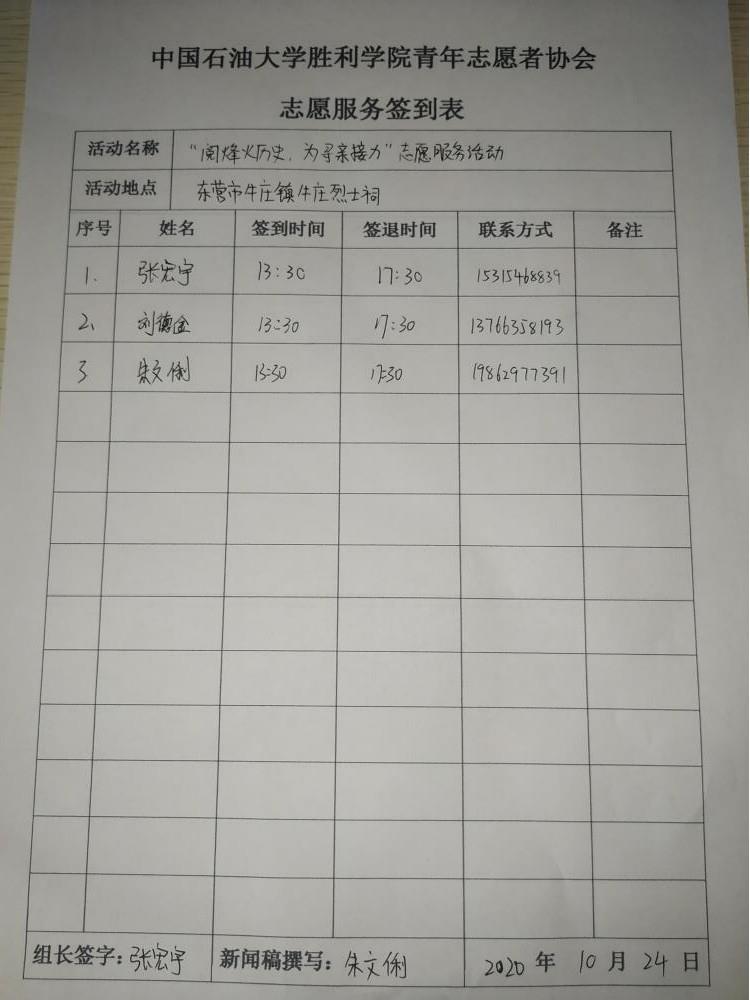 中国石油大学胜利学院青年志愿者协会
志愿服务签到表
活动名称 “阅烽火历史，为寻亲接力”志愿服务活动
活动地点 东营市牛庄镇牛庄烈士祠
序号 姓名 签到时间 签退时间 联系方式 备注
1. 张宏宇 13:30 17:30 15315468839
2、 刘德金 13:30 17:30 13766358193
3 朱文俐 13:30 17:30 19862977391
组长签字：张宏宇 新闻稿撰写：朱文俐 2020 年 10 月 24 日